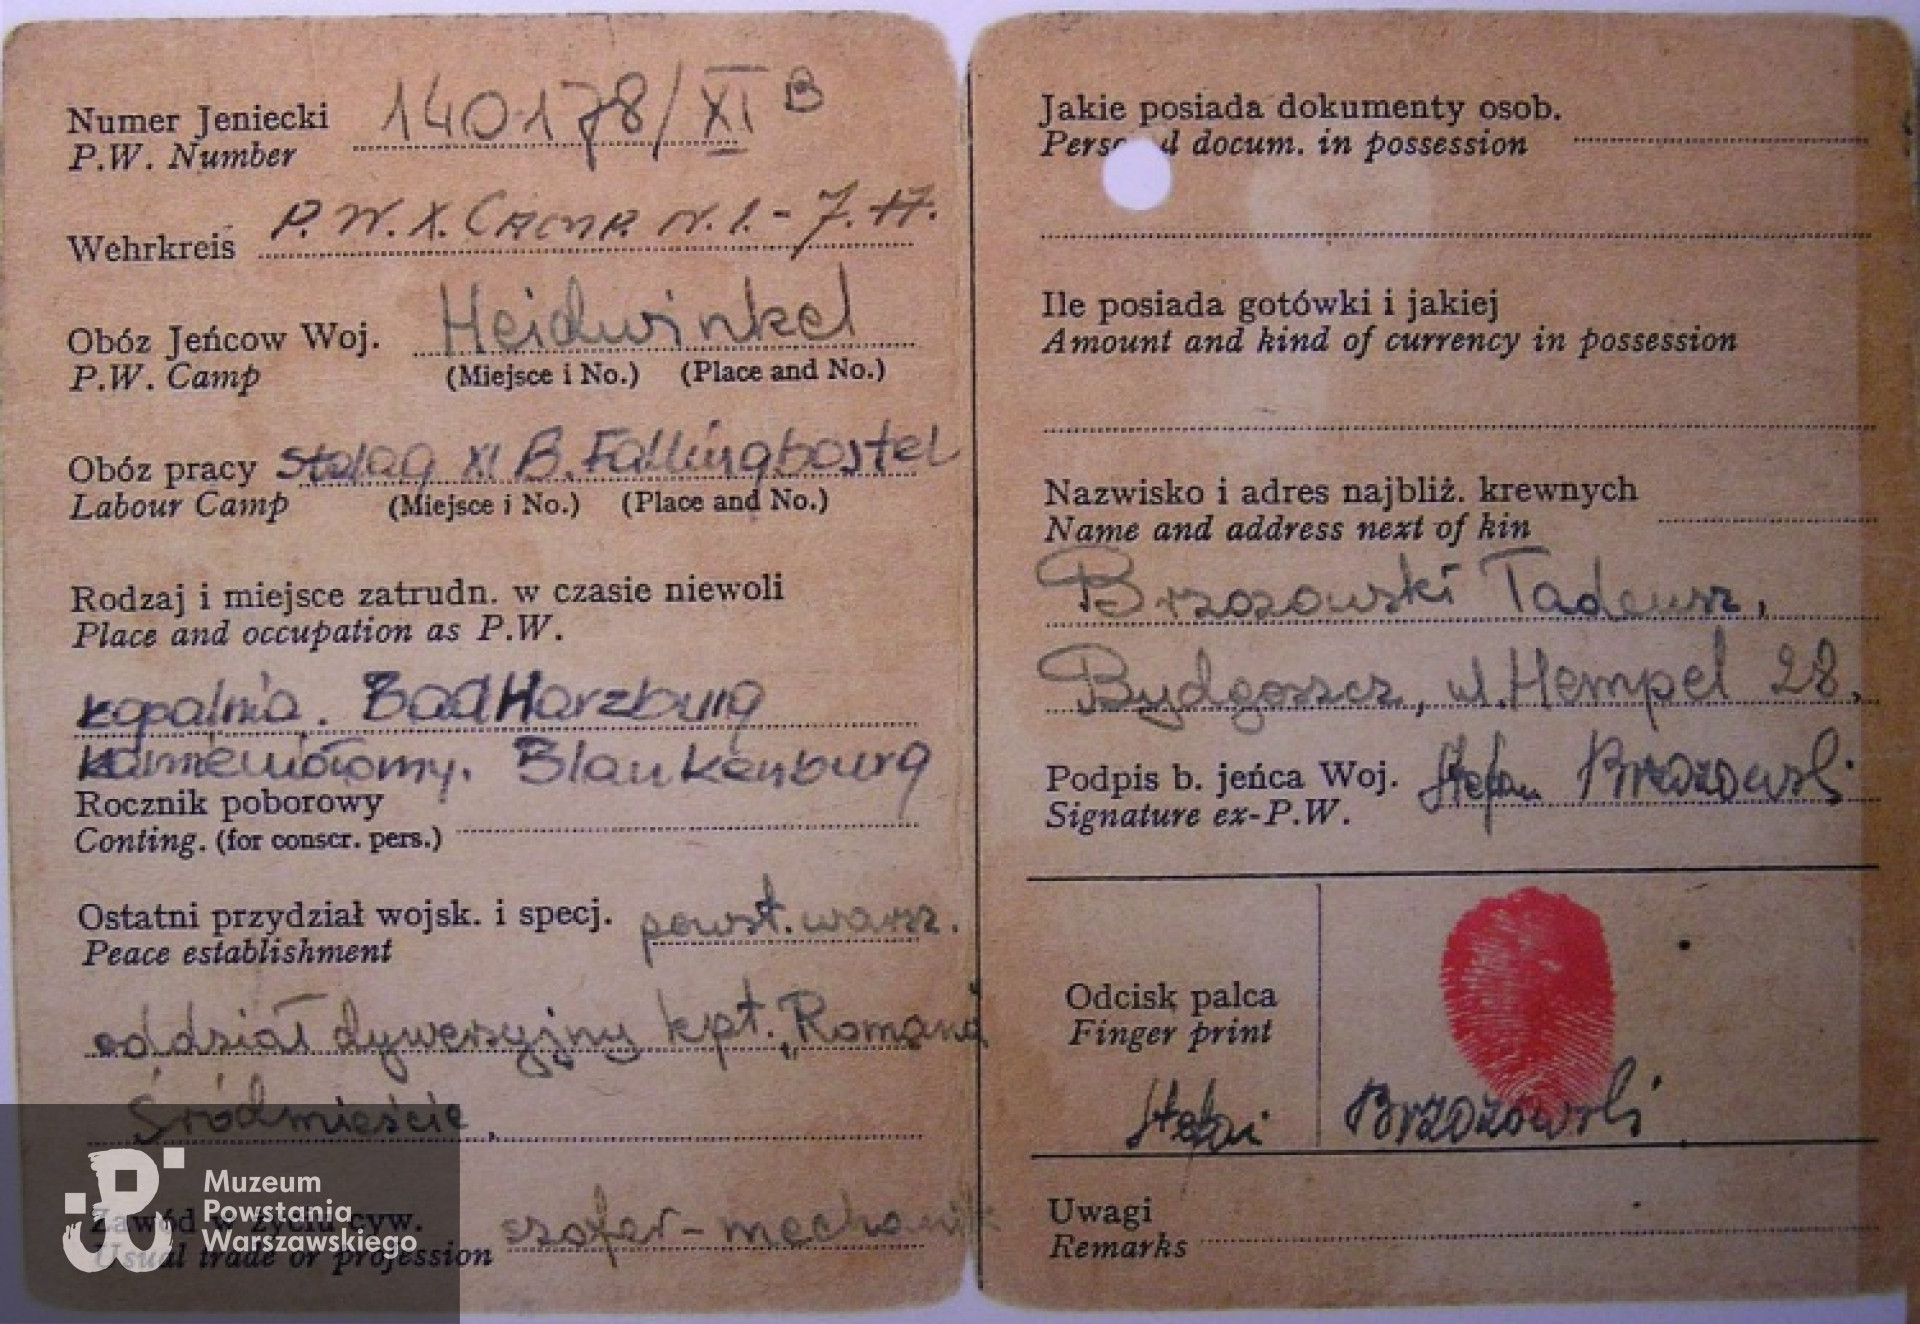 Numer Jeniecki 140178/XI B
P.W. Number
Wehrkreis P.W.X. Camp N.1. -
Obóz Jeńcow Woj. Heidwinkel
P.W. Camp (Miejsce i No.) (Place and No.)
Obóz pracy Stalag XI B. Fallingbostel
Labour Camp (Miejsce i No.) (Place and No.)
Rodzaj i miejsce zatrudn. w czasie niewoli
Place and occupation as P.W.
kopalnia. Bad Harzburg
kamieniołomy. Blankenburg
Rocznik poborowy
Conting. (for conscr. pers.)
Ostatni przydział wojsk. i specj. powst. warsz.
Peace establishment
oddział dywersyjny kpt. „Romana
Śródmieście,
Zawód w życiu cyw. szofer-mechanik
Usual trade or profession
Muzeum
Powstania
Warszawskiego
Jakie posiada dokumenty osob.
docum. in possession
Ile posiada gotówki i jakiej
Amount and kind of currency in possession
Nazwisko i adres najbliż. krewnych
Name and address next of kin
Brzozowski Tadeusz,
Bydgoszcz, ul. Hempel 28.
Podpis b. jeńca Woj. Stefan Brzozowski
Signature ex-P.W.
Odcisk palca
Finger print
Stefan Brzozowski
Uwagi
Remarks